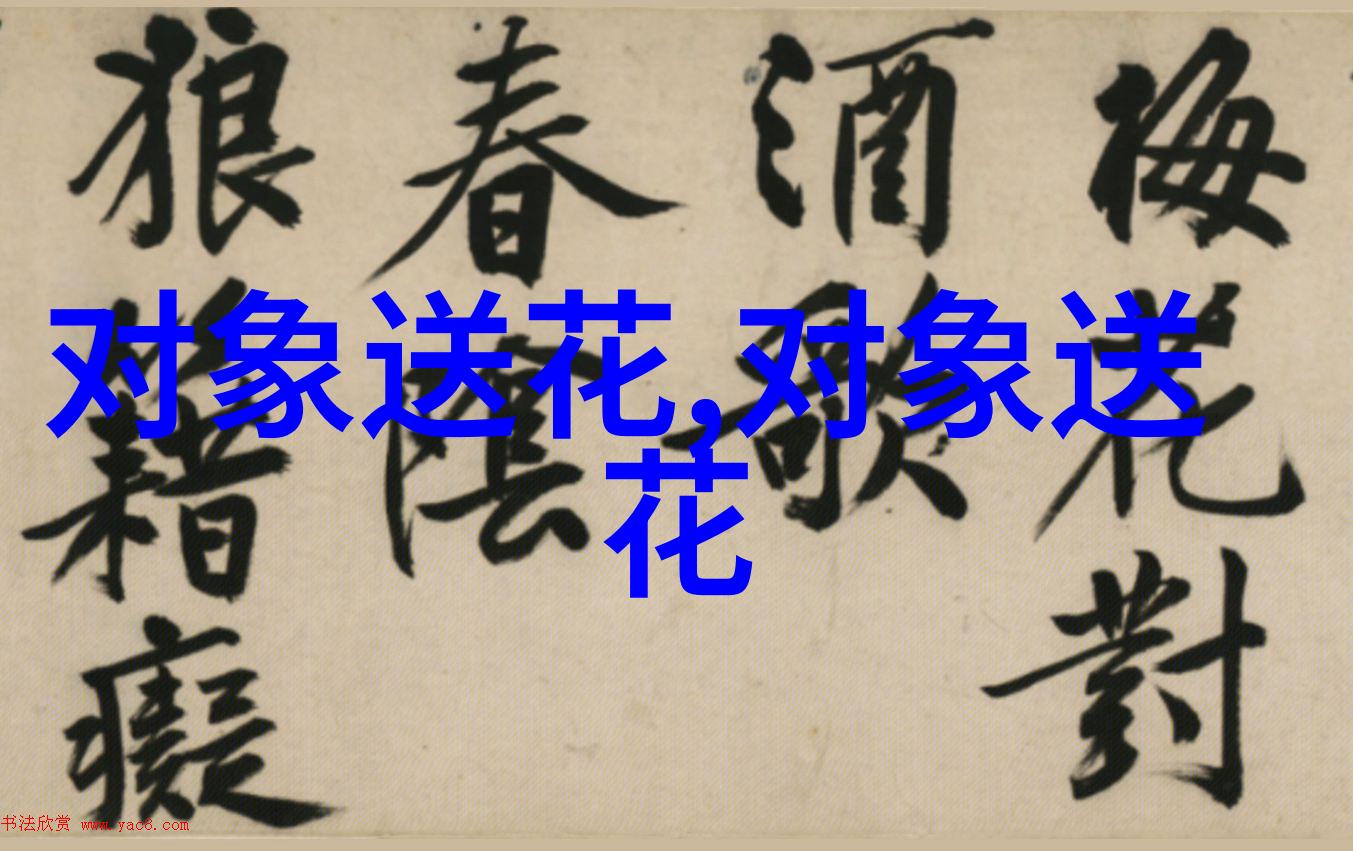 梅花對
酒歌
春陰
狼籍癡
对象送花,对象送
花
书法欣赏 www.yac8.com